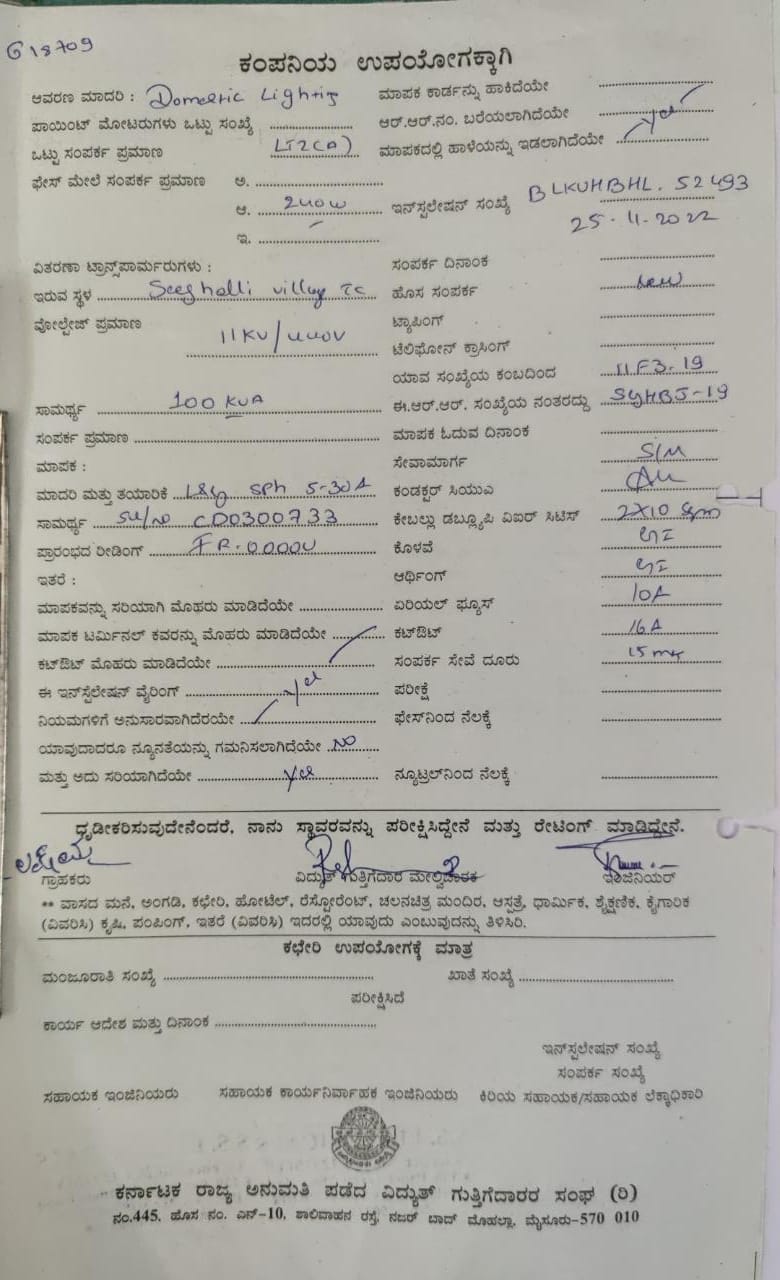 G18709
ಕಂಪನಿಯ ಉಪಯೋಗಕ್ಕಾಗಿ
ಆವರಣ ಮಾದರಿ : Domestic Lighting
ಪಾಯಿಂಟ್ ಮೋಟರುಗಳು ಒಟ್ಟು ಸಂಖ್ಯೆ
ಒಟ್ಟು ಸಂಪರ್ಕ ಪ್ರಮಾಣ LT2(A)
ಫೇಸ್ ಮೇಲೆ ಸಂಪರ್ಕ ಪ್ರಮಾಣ ಅ.
ಆ. 240W
ಇ.
ವಿತರಣಾ ಟ್ರಾನ್ಸ್‌ಪಾರ್ಮರುಗಳು :
ಇರುವ ಸ್ಥಳ Seeghalli village TC
ವೋಲ್ಟೇಜ್ ಪ್ರಮಾಣ 11KV/440V
ಸಾಮರ್ಥ್ಯ 100 KVA
ಸಂಪರ್ಕ ಪ್ರಮಾಣ
ಮಾಪಕ :
ಮಾದರಿ ಮತ್ತು ತಯಾರಿಕೆ L&G SPh 5-30A
ಸಾಮರ್ಥ್ಯ Sl/no CD0300733
ಪ್ರಾರಂಭದ ರೀಡಿಂಗ್
ಇತರೆ :
ಮಾಪಕವನ್ನು ಸರಿಯಾಗಿ ಮೊಹರು ಮಾಡಿದೆಯೇ
ಮಾಪಕ ಟರ್ಮಿನಲ್ ಕವರನ್ನು ಮೊಹರು ಮಾಡಿದೆಯೇ
ಕಟ್‌ಔಟ್ ಮೊಹರು ಮಾಡಿದೆಯೇ
ಈ ಇನ್‌ಸ್ಟಲೇಷನ್ ವೈರಿಂಗ್ yes
ನಿಯಮಗಳಿಗೆ ಅನುಸಾರವಾಗಿದೆರಯೇ
ಯಾವುದಾದರೂ ನ್ಯೂನತೆಯನ್ನು ಗಮನಿಸಲಾಗಿದೆಯೇ NO
ಮತ್ತು ಅದು ಸರಿಯಾಗಿದೆಯೇ yes
ಮಾಪಕ ಕಾರ್ಡನ್ನು ಹಾಕಿದೆಯೇ
ಆರ್.ಆರ್.ನಂ. ಬರೆಯಲಾಗಿದೆಯೇ yes
ಮಾಪಕದಲ್ಲಿ ಹಾಳೆಯನ್ನು ಇಡಲಾಗಿದೆಯೇ
ಇನ್‌ಸ್ಟಲೇಷನ್ ಸಂಖ್ಯೆ BLKUHBHL. 52493
25-11-2022
ಸಂಪರ್ಕ ದಿನಾಂಕ
ಹೊಸ ಸಂಪರ್ಕ New
ಟ್ಯಾಪಿಂಗ್
ಟೆಲಿಫೋನ್ ಕ್ರಾಸಿಂಗ್
ಯಾವ ಸಂಖ್ಯೆಯ ಕಂಬದಿಂದ 11.F3.19
ಈ.ಆರ್.ಆರ್. ಸಂಖ್ಯೆಯ ನಂತರದ್ದು SGHBJ-19
ಮಾಪಕ ಓದುವ ದಿನಾಂಕ
ಸೇವಾಮಾರ್ಗ S/M
ಕಂಡಕ್ಟರ್ ಸಿಯುಎ
ಕೇಬಲ್ಲು ಡಬ್ಲ್ಯೂಪಿ ವಿಐರ್ ಸಿಟಿಸ್ 2X10 Sqm
ಕೊಳವೆ GI
ಆರ್ಥಿಂಗ್ GI
ಏರಿಯಲ್ ಫ್ಯೂಸ್ 10A
ಕಟ್‌ಔಟ್ 16A
ಸಂಪರ್ಕ ಸೇವೆ ದೂರು 15 mtr
ಪರೀಕ್ಷೆ
ಫೇಸ್‌ನಿಂದ ನೆಲಕ್ಕೆ
ನ್ಯೂಟ್ರಲ್‌ನಿಂದ ನೆಲಕ್ಕೆ
ಧೃಡೀಕರಿಸುವುದೇನೆಂದರೆ, ನಾನು ಸ್ಥಾವರವನ್ನು ಪರೀಕ್ಷಿಸಿದ್ದೇನೆ ಮತ್ತು ರೇಟಿಂಗ್ ಮಾಡಿದ್ದೇನೆ.
ಗ್ರಾಹಕರು ವಿದ್ಯುತ್ ಗುತ್ತಿಗೆದಾರ ಮೇಲ್ವಿಚಾರಕ ಇಂಜಿನಿಯರ್
** ವಾಸದ ಮನೆ, ಅಂಗಡಿ, ಕಛೇರಿ, ಹೋಟೆಲ್, ರೆಸ್ಟೋರೆಂಟ್, ಚಲನಚಿತ್ರ ಮಂದಿರ, ಆಸ್ಪತ್ರೆ, ಧಾರ್ಮಿಕ, ಶೈಕ್ಷಣಿಕ, ಕೈಗಾರಿಕ
(ವಿವರಿಸಿ) ಕೃಷಿ, ಪಂಪಿಂಗ್, ಇತರೆ (ವಿವರಿಸಿ) ಇದರಲ್ಲಿ ಯಾವುದು ಎಂಬುವುದನ್ನು ತಿಳಿಸಿರಿ.
ಕಛೇರಿ ಉಪಯೋಗಕ್ಕೆ ಮಾತ್ರ
ಮಂಜೂರಾತಿ ಸಂಖ್ಯೆ ಖಾತೆ ಸಂಖ್ಯೆ
ಪರೀಕ್ಷಿಸಿದೆ
ಕಾರ್ಯ ಆದೇಶ ಮತ್ತು ದಿನಾಂಕ
ಇನ್‌ಸ್ಟಲೇಷನ್ ಸಂಖ್ಯೆ
ಸಂಪರ್ಕ ಸಂಖ್ಯೆ
ಸಹಾಯಕ ಇಂಜಿನಿಯರು ಸಹಾಯಕ ಕಾರ್ಯನಿರ್ವಾಹಕ ಇಂಜಿನಿಯರು ಕಿರಿಯ ಸಹಾಯಕ/ಸಹಾಯಕ ಲೆಕ್ಕಾಧಿಕಾರಿ
ಕರ್ನಾಟಕ ರಾಜ್ಯ ಅನುಮತಿ ಪಡೆದ ವಿದ್ಯುತ್ ಗುತ್ತಿಗೆದಾರರ ಸಂಘ (ರಿ)
ನಂ.445, ಹೊಸ ನಂ. ಎನ್-10, ಶಾಲಿವಾಹನ ರಸ್ತೆ, ನಜರ್ ಬಾದ್ ಮೊಹಲ್ಲಾ, ಮೈಸೂರು-570 010